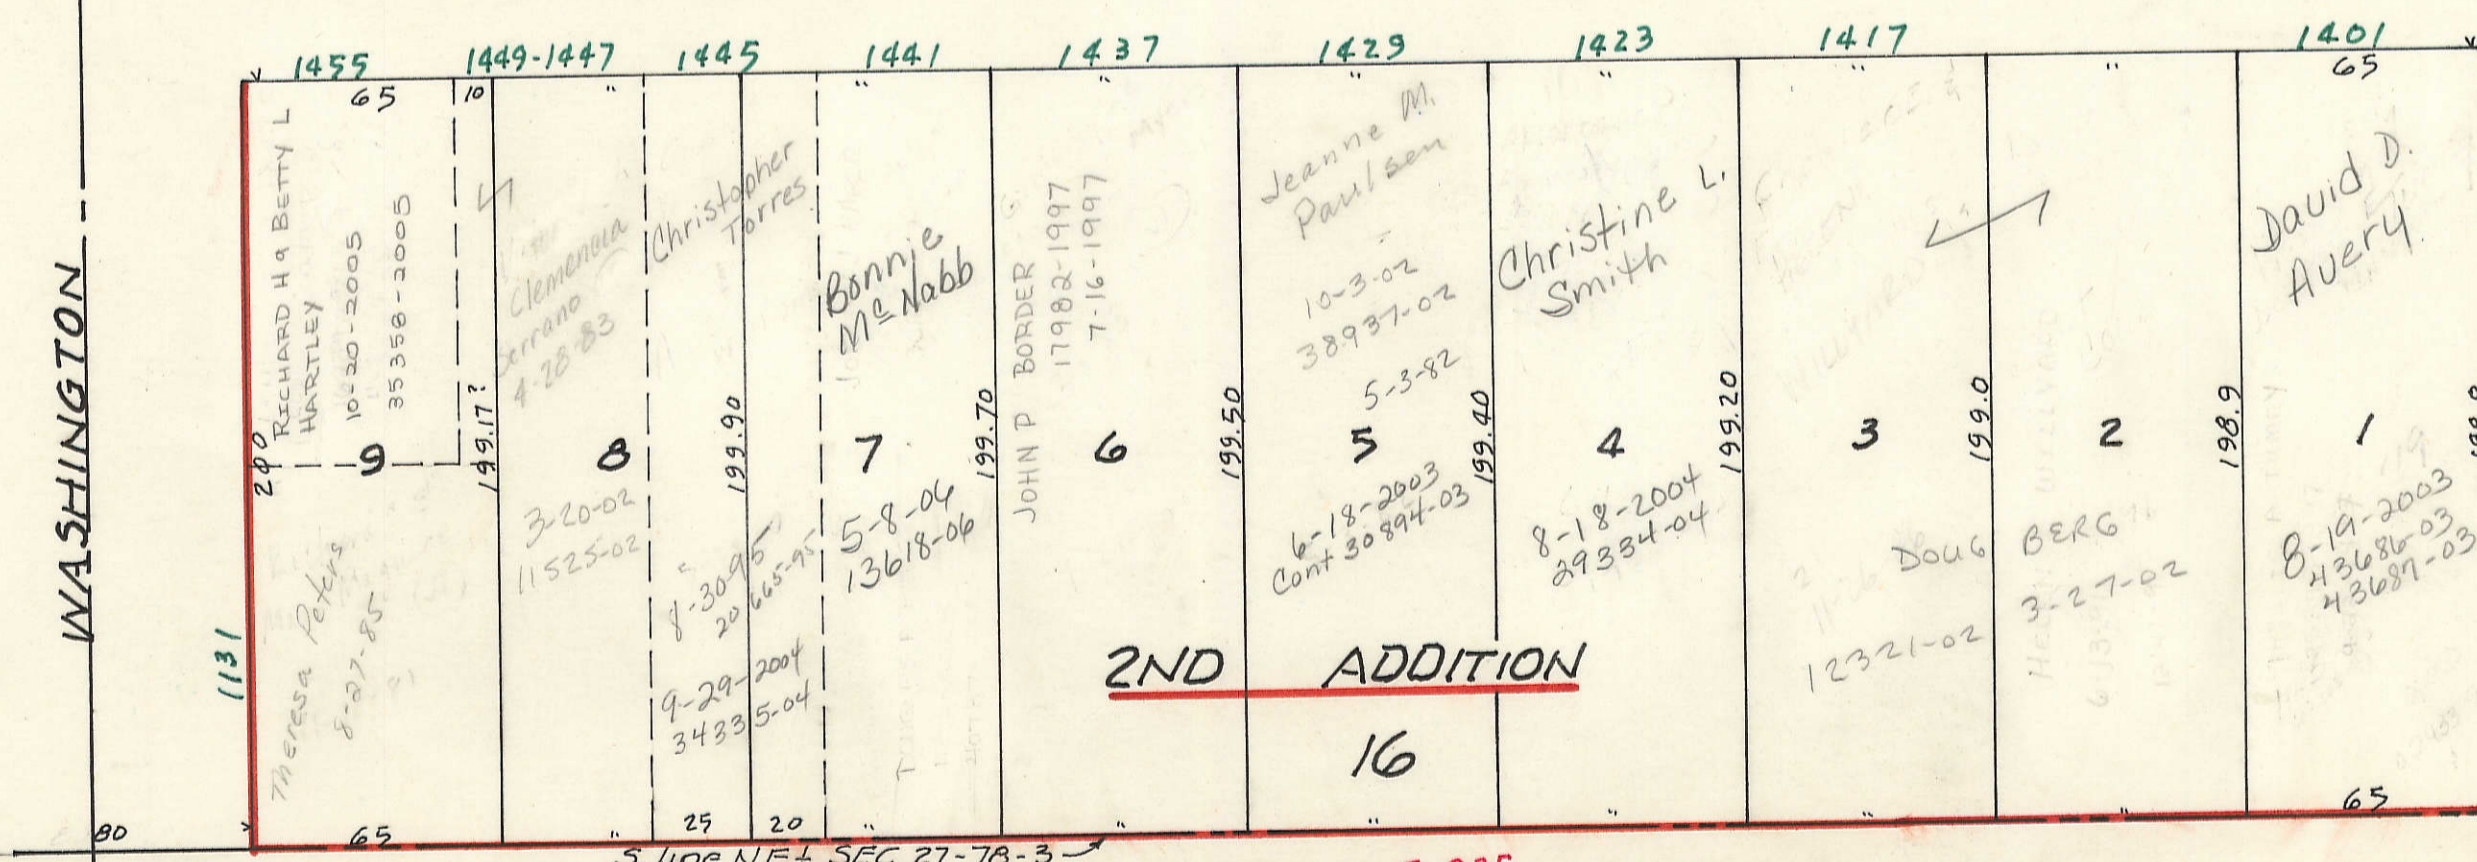 1455 1449-1447 1445 1441 1437 1429 1423 1417 1401
65 10 " " " " " " " 65
WASHINGTON
RICHARD H & BETTY L
HARTLEY
10-20-2005
35358-2005
200
9
199.17?
Theresa Peters
8-27-85
1131
Clemencia
Serrano
4-28-83
8
3-20-02
11525-02
Christopher
Torres
199.90
8-30-95
20665-95
9-29-2004
34335-04
Bonnie
Mc Nabb
7
199.70
5-8-06
13618-06
JOHN P BORDER
17982-1997
7-16-1997
6
199.50
Jeanne M.
Paulsen
10-3-02
38937-02
5-3-82
5
199.40
6-18-2003
Cont 30894-03
Christine L.
Smith
4
199.20
8-18-2004
29334-04
3
199.0
2
198.9
DOUG BERG
3-27-02
12321-02
David D.
Avery
1
8-19-2003
43686-03
43687-03
2ND ADDITION
16
80 65 " 25 20 " " " " " " 65